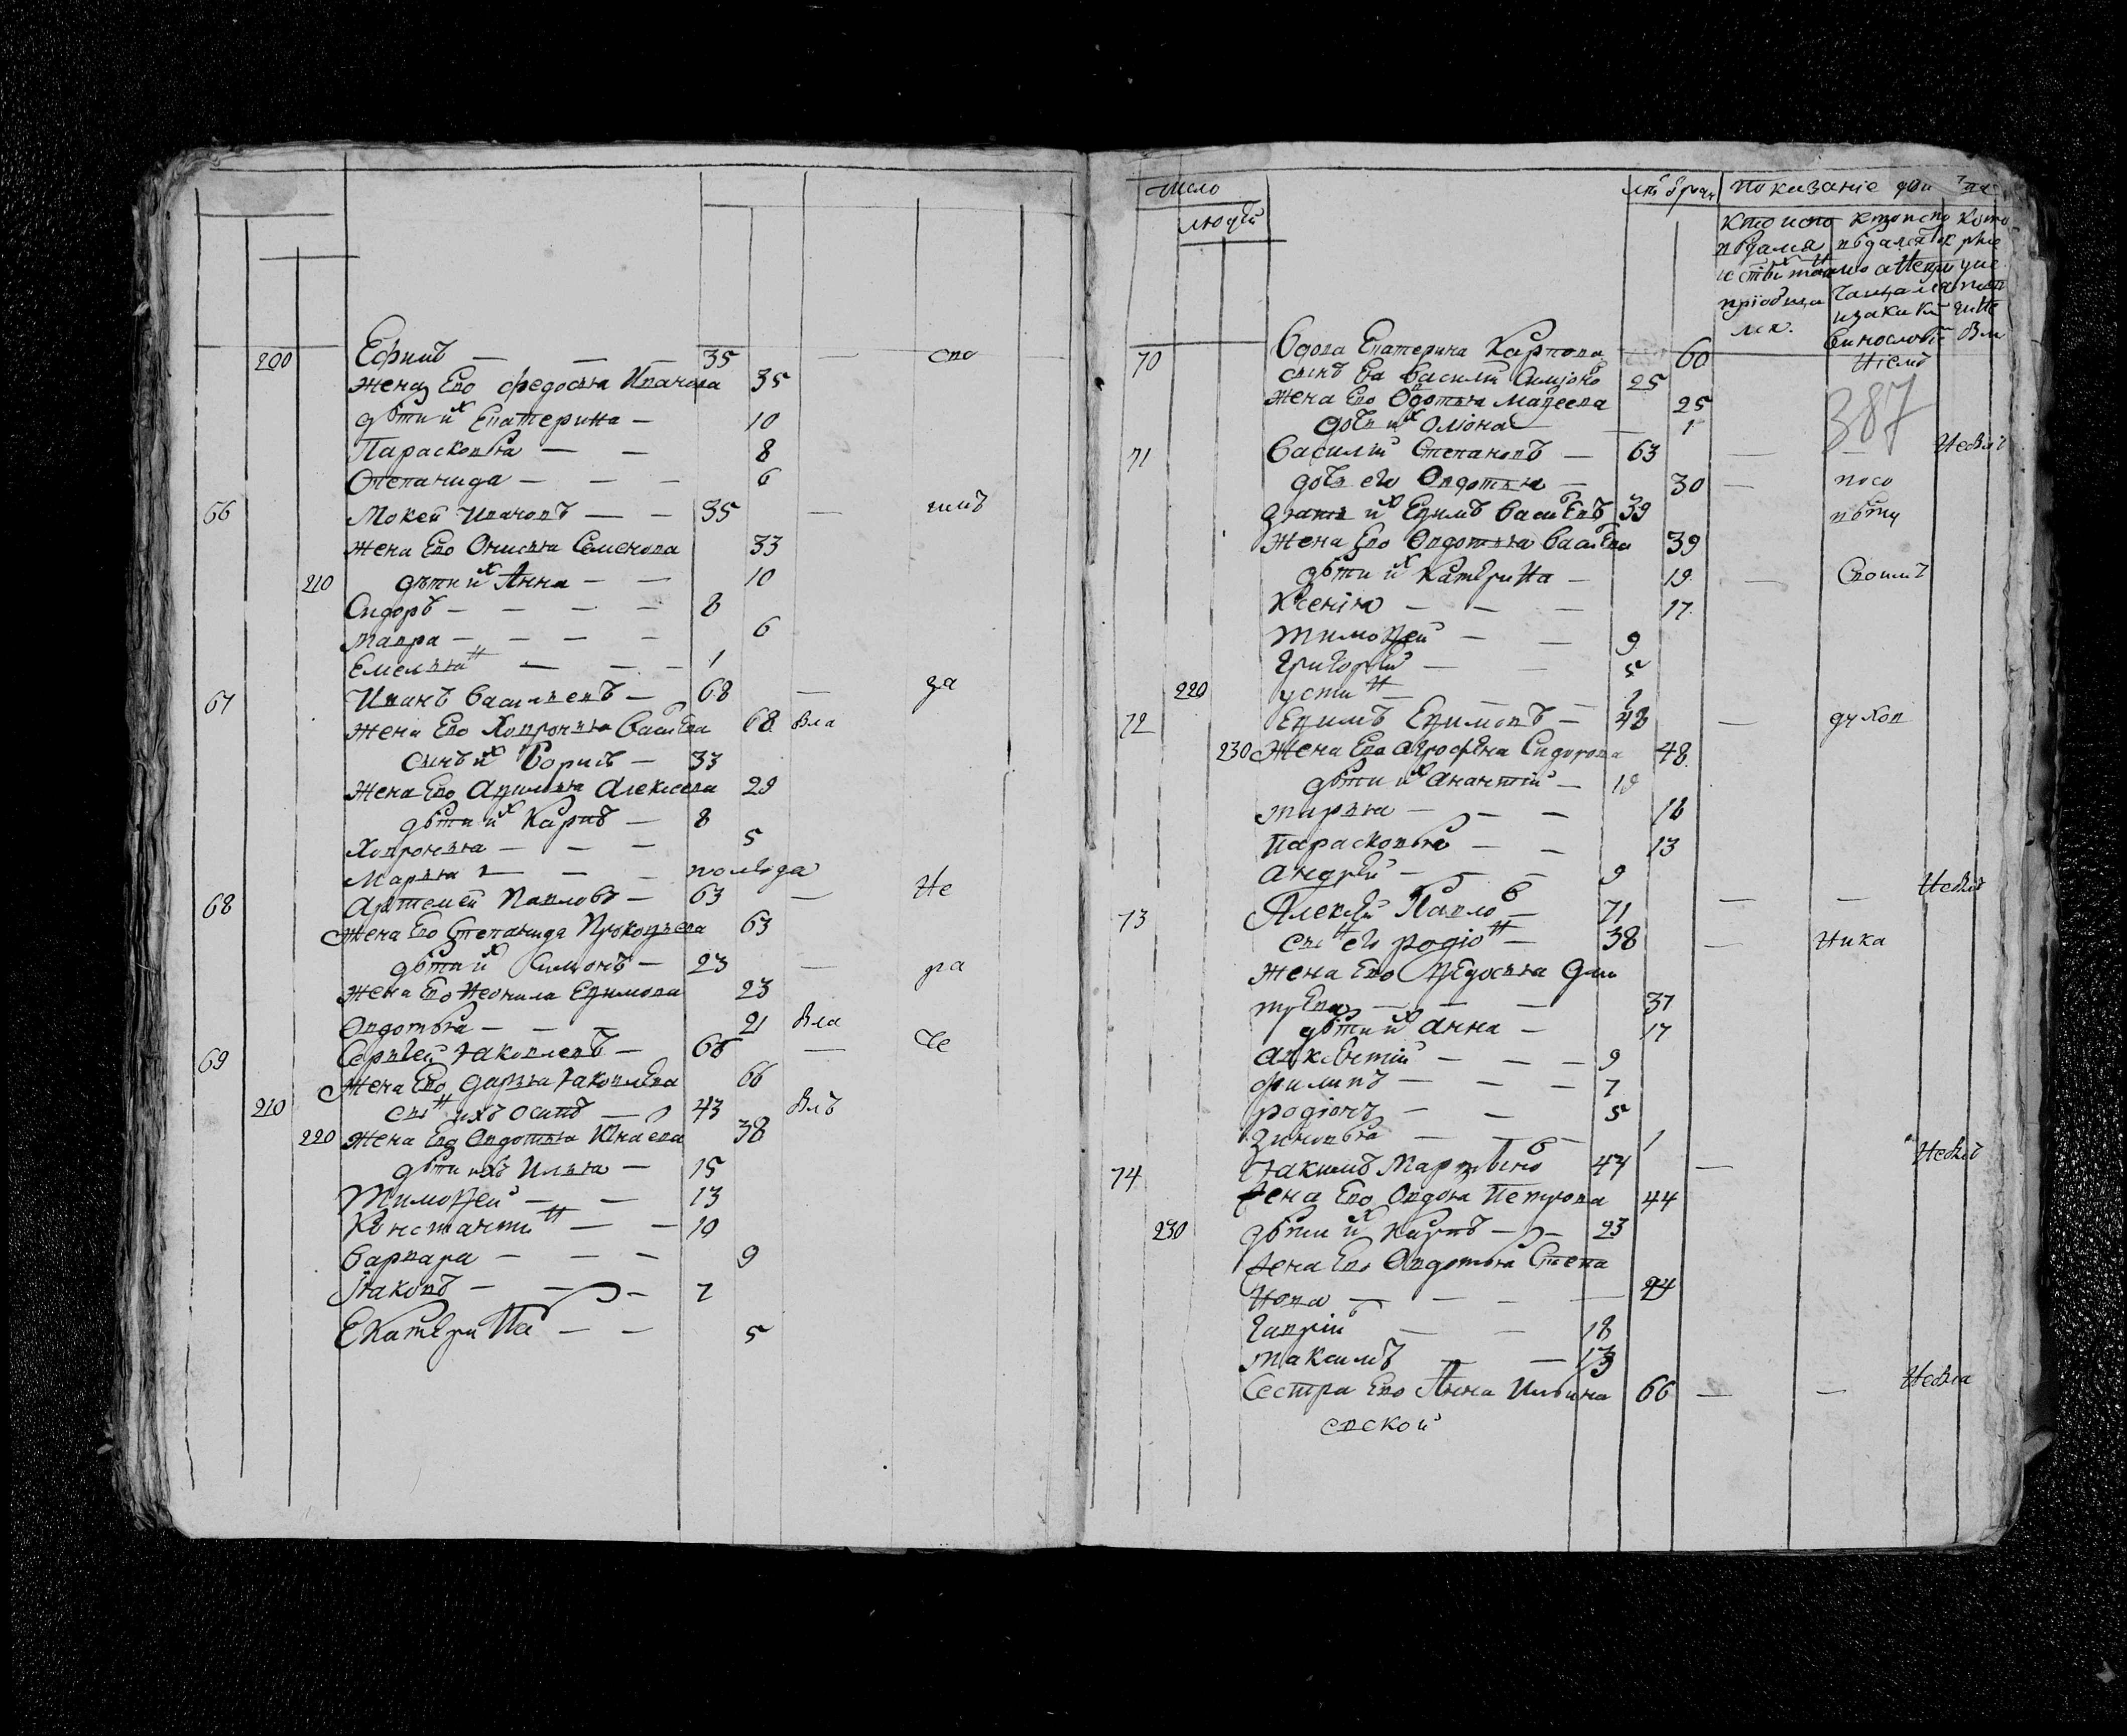 200 Ефимъ — — — 35 — сво
жена Ево Федосья Иванова 35
дѣти их Екатерина — 10
Парасковья — — 8
Степанида — — — 6
66 Мокей Ивановъ — — 35 — имъ
жена Ево Онисья Семенова 33
210 дѣти их Анна — — 10
Сидоръ — — — — 8
Мавра — — — — 6
Емельян — — — 1
67 Иванъ Васильевъ — 68 — за
жена Ево Хавронья Васильева 68 Вла
сынъ их Борисъ — 33
жена Ево Афимья Алексеева 29
дѣти их Карпъ — 8
Хавронья — — — 5
Марья — — — полгода
68 Артемей Павловъ — 63 — Не
жена Ево Степанида Прокофьева 63
дѣти их Симіонъ — 23 — ра
жена Ево Неонила Ефимова 23
Овдотья — — — 21 Вла
69 Сергѣй Яковлевъ — 66 — че
жена Ево Дарья Яковлева 66
210 сын ихъ Осипъ — 43 Влъ
220 жена Ево Овдотья 38
дѣти ихъ Илья — 15
Тимофей — — 13
Константи н — — 10
Варвара — — — 9
Яковъ — — — 7
Екатерина — — 5
число лѣт
людей
Кто испо кто испо кото
вѣдался вѣдался рые
и свтых таинъ
пріобща
лся.
70 Вдова Екатерина Карпова 60 ніемъ
сынъ Ея Василій Симіоно 25
жена Ево Овдотья Матфеева 25
дочь их Оліона — 1
387
71 Василій Степановъ — 63 — — Невлъ
дочь его Овдотья — 30 — посо
зять их Ефимъ Васильевъ 39 вѣту
жена Ево Овдотья Васильева 39
дѣти их Катерина — 19 — Своимъ
Ксенія — — — 17
Тимофей — — 9
Григорій — — 5
220 Устин — — — 2
72 Ефимъ Ефимовъ — 48 — духов
230 жена Ево Агрофена Сидорова 48
дѣти их Ананій — 19
Марья — — — 16
Парасковья — — 13
Андрей — — — 9
73 Алексѣй Павлов — 71 — — Невлъ
сын его Родіон — 38 — Ника
жена Ево Федосья Дми
трева — — — 37
дѣти их Анна — 17
Авксентій — — — 9
Филипъ — — — 7
Родіонъ — — 5
Зиновья — — — 1
74 Якимъ 44 — Невлъ
жена Ево Овдотья Петрова 44
230 дѣти их Карпъ — — 23
жена Ево Овдотья Степа
нова — — — — 24
Гаврій — — 18
Максимъ — — 13
Сестра Ево Анна Ильина 66 — — Невла
ской